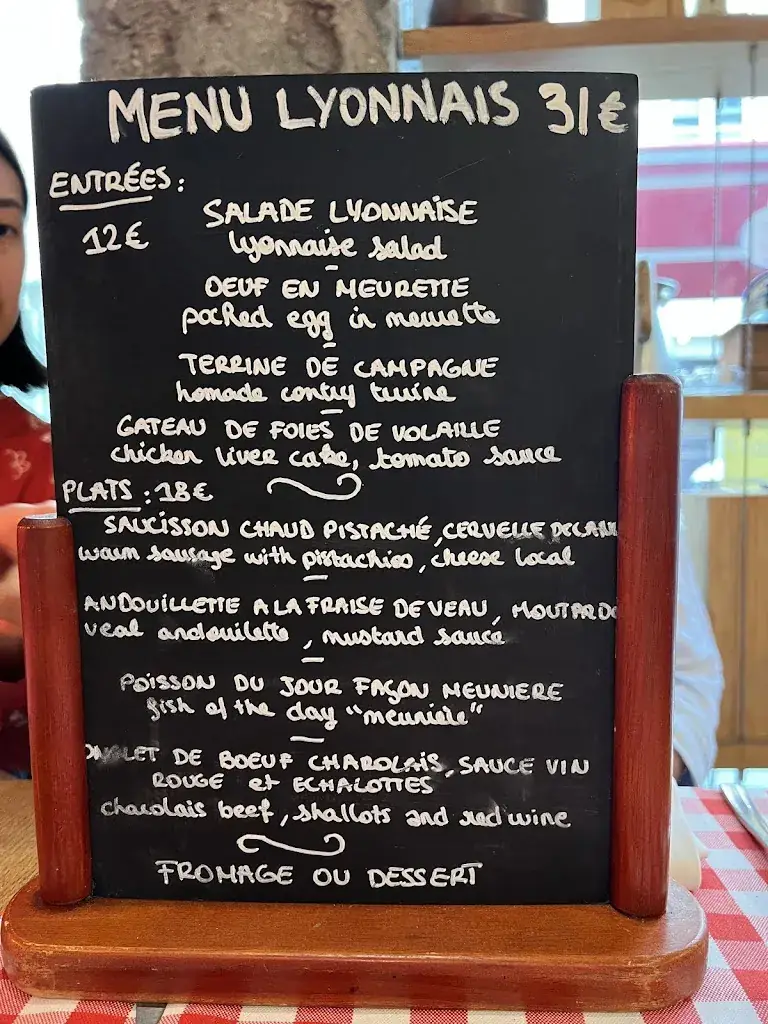 MENU LYONNAIS 31€
ENTRÉES:
12€
SALADE LYONNAISE
lyonnaise salad
OEUF EN MEURETTE
poched egg in meurette
TERRINE DE CAMPAGNE
homade contry terrine
GATEAU DE FOIES DE VOLAILLE
chicken liver cake, tomato sauce
PLATS: 18€
SAUCISSON CHAUD PISTACHÉ, CERVELLE DE
warm sausage with pistachios, cheese local
ANDOUILLETTE A LA FRAISE DE VEAU, MOUTARD
veal andouilette, mustard sauce
POISSON DU JOUR FAÇON MEUNIERE
fish of the day "meunière"
ONGLET DE BOEUF CHAROLAIS, SAUCE VIN
ROUGE et ECHALOTTES
charolais beef, shallots and red wine
FROMAGE OU DESSERT